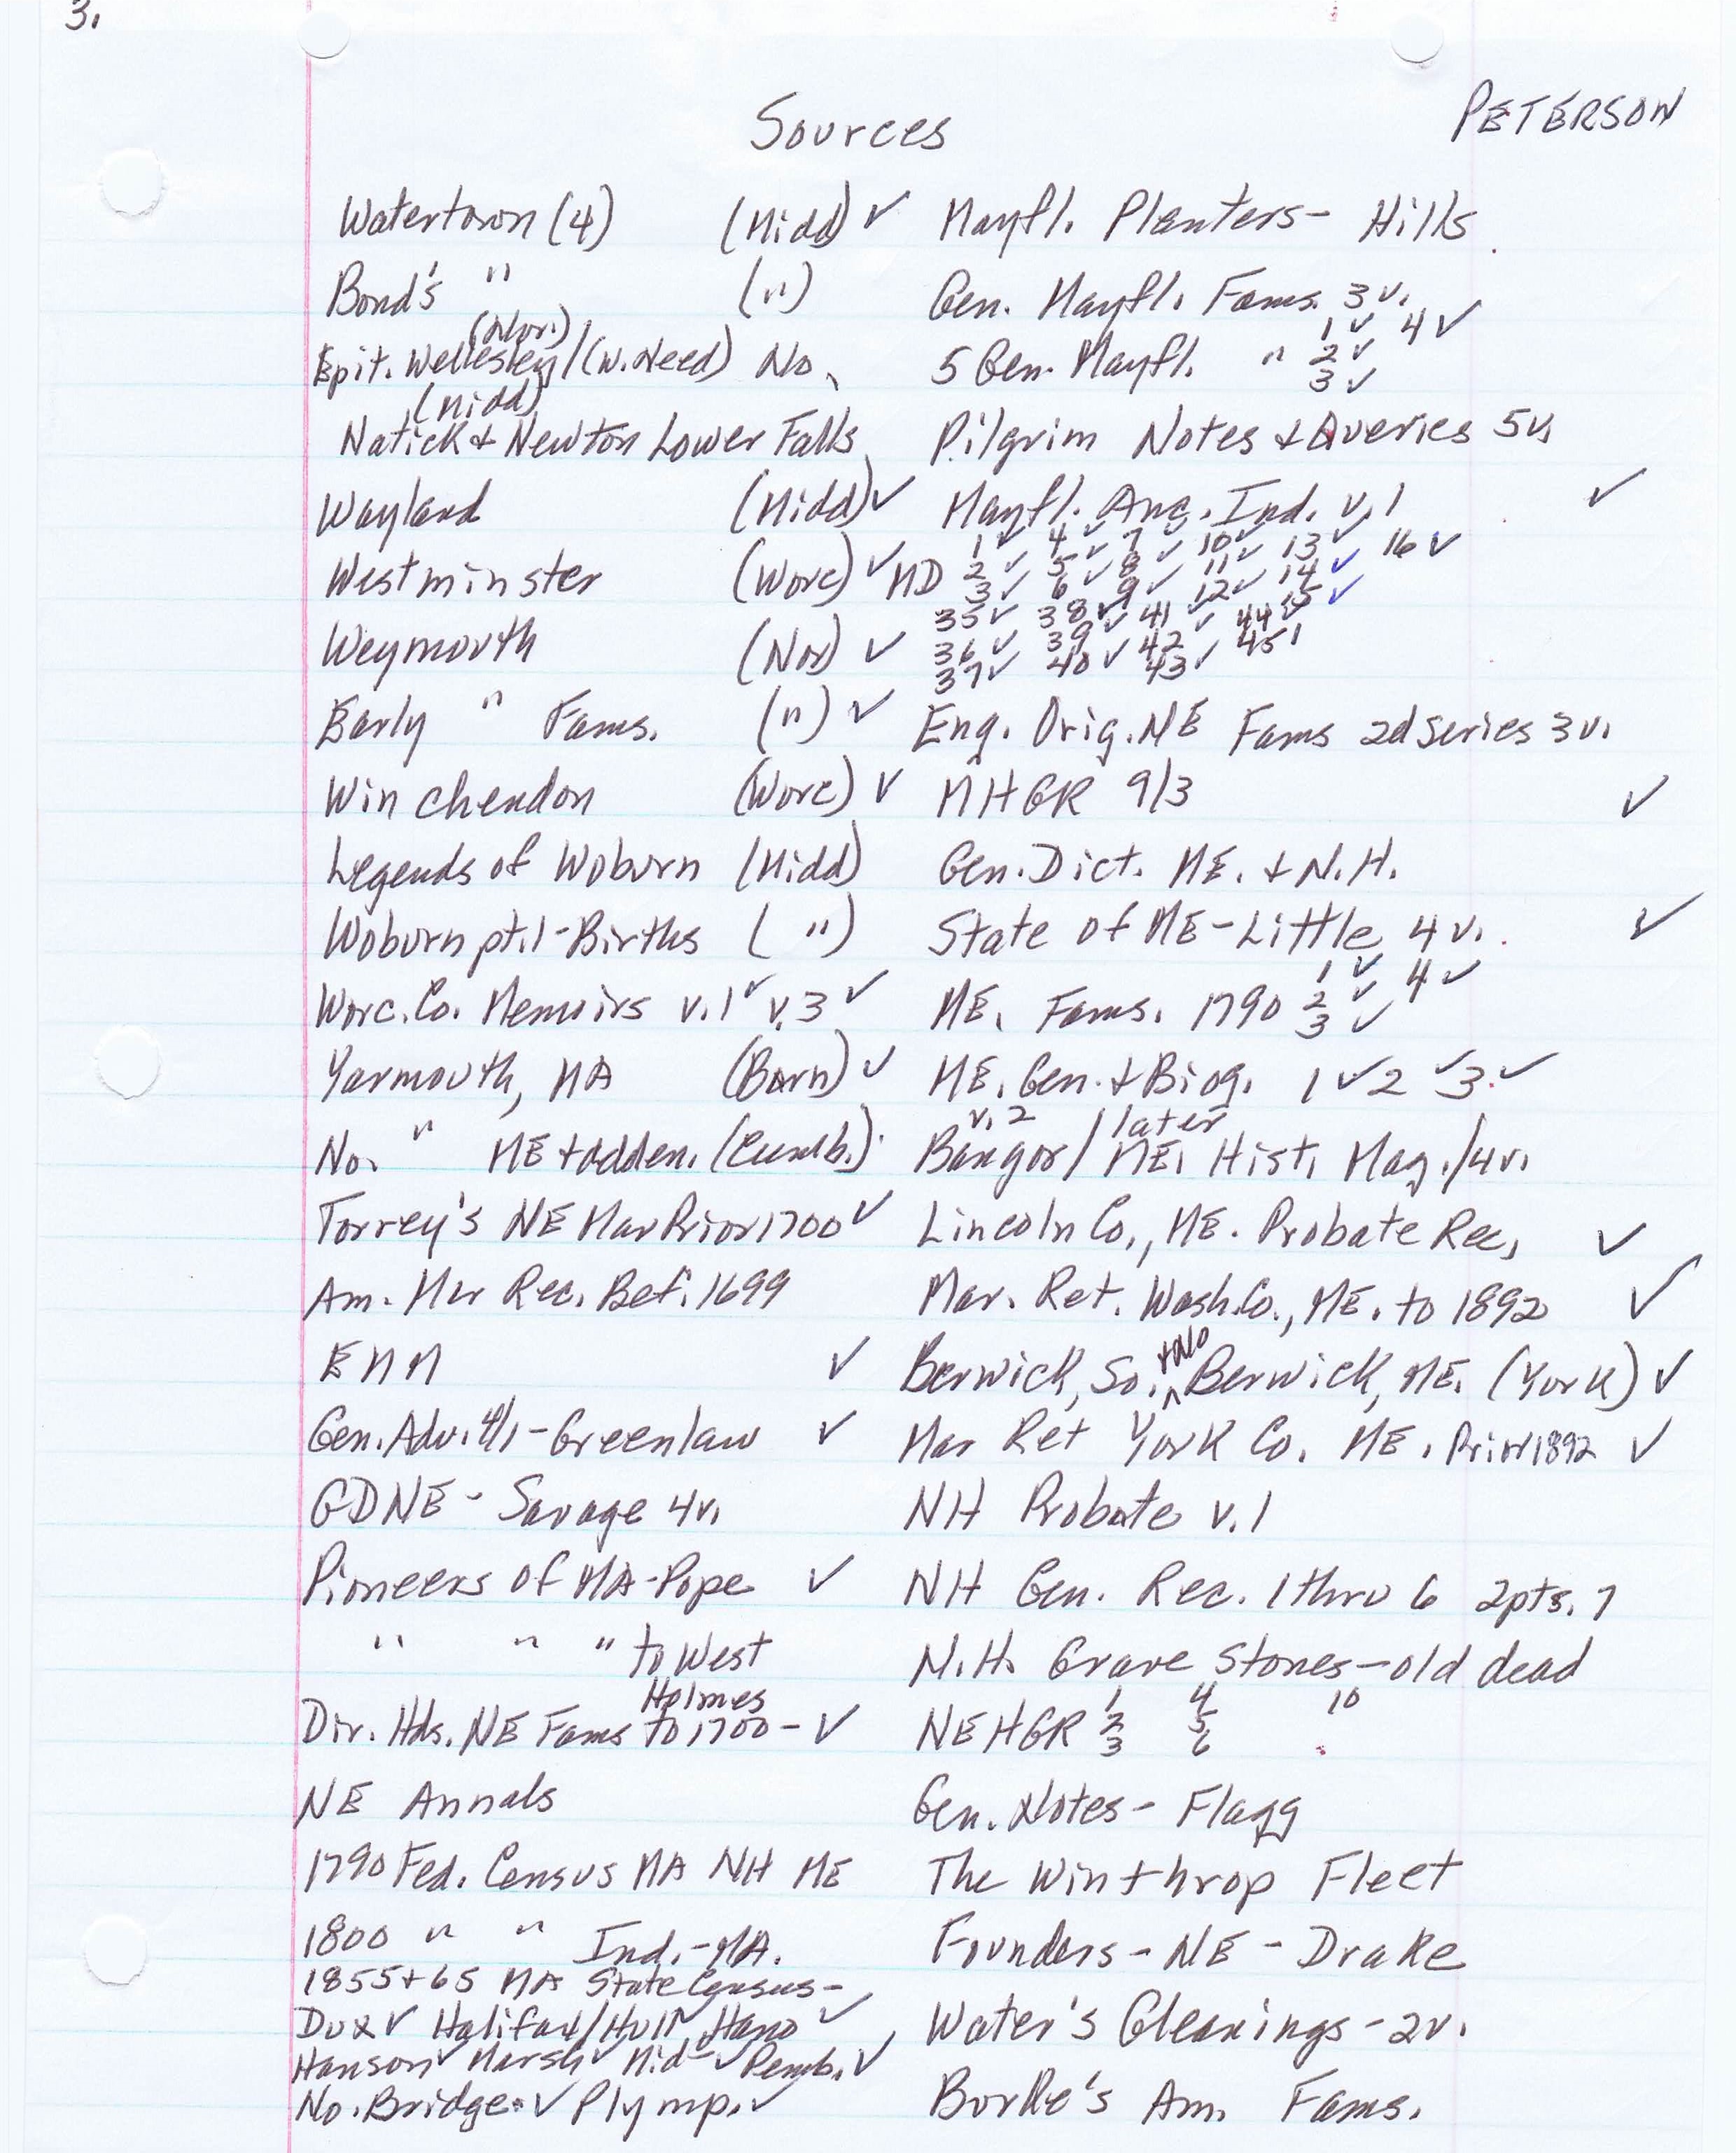 3.
Sources
PETERSON
Watertown (4) (Midd) ✓
Bond's " (")
(Nor.)
Epit. Wellesley/(W. Need) No.
(Midd)
Natick & Newton Lower Falls
Wayland (Midd) ✓
Westminster (Worc) ✓
Weymouth (Nor) ✓
Early " Fams. (") ✓
Winchendon (Worc) ✓
Legends of Woburn (Midd)
Woburn pt.1-Births (")
Worc. Co. Memoirs v.1 ✓ v.3 ✓
Yarmouth, MA (Barn) ✓
No. " ME + adden. (Cumb.)
Torrey's NE Mar Prior 1700 ✓
Am. Mar Rec. Bef. 1699
EMM ✓
Gen. Adv. 4/1 - Greenlaw ✓
GDNE - Savage 4v.
Pioneers of MA-Pope ✓
" " " to West
Holmes
Dir. Hds. NE Fams to 1700 - ✓
NE Annals
1790 Fed. Census MA NH ME
1800 " " Ind.-MA.
1855+65 MA State Census-
Dux ✓ Halifax/Hull, Hano ✓
Hanson ✓ Marsh ✓ Mid- ✓ Pemb. ✓
No. Bridge. ✓ Plymp. ✓
Mayfl. Planters- Hills
Gen. Mayfl. Fams. 3v.
5 Gen. Mayfl. " 1 ✓ 2 ✓ 3 ✓ 4 ✓
Pilgrim Notes & Queries 5v.
Mayfl. Anc. Ind. v.1 ✓
MD 1 ✓ 4 ✓ 7 ✓ 10 ✓ 13 ✓ 16 ✓
2 ✓ 5 ✓ 8 ✓ 11 ✓ 14 ✓
3 ✓ 6 ✓ 9 ✓ 12 ✓ 15 ✓
35 ✓ 38 ✓ 41 ✓ 44 ✓
36 ✓ 39 ✓ 42 45
37 ✓ 40 ✓ 43 ✓
Eng. Orig. NE Fams 2d Series 3v.
MHGR 9/3 ✓
Gen. Dict. ME. & N.H.
State of ME-Little 4v. ✓
ME. Fams. 1790 1 ✓ 2 ✓ 3 ✓ 4 ✓
ME. Gen. & Biog. 1 ✓ 2 ✓ 3 ✓
v.2 later
Bangor/ME. Hist. Mag./4v.
Lincoln Co., ME. Probate Rec. ✓
Mar. Ret. Wash. Co., ME. to 1892 ✓
Berwick, So. + No Berwick, ME. (York) ✓
Mar Ret York Co. ME. Prior 1892 ✓
NH Probate v.1
NH Gen. Rec. 1 thru 6 2pts. 7
N.H. Grave Stones-old dead
NEHGR 1 2 3 4 5 6 10
Gen. Notes- Flagg
The Winthrop Fleet
Founders - NE - Drake
Water's Gleanings - 2v.
Burke's Am. Fams.